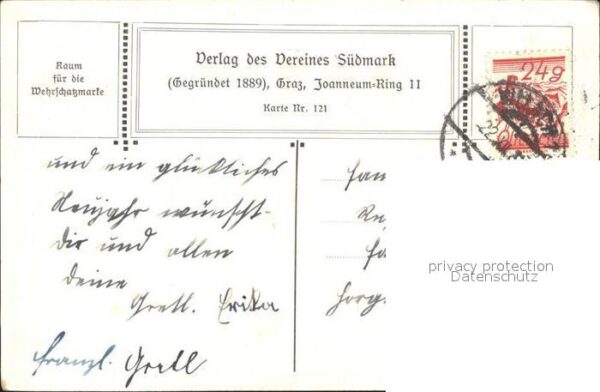 Raum
für die
Wehrschatzmarke
Verlag des Vereines Südmark
(Gegründet 1889), Graz, Joanneum=Ring 11
Karte Nr. 121
24g
22
und ein glückliches
Neujahr wünscht
Dir und allen
deine
Gretl. Erika
Franzl. Gretl
privacy protection
Datenschutz